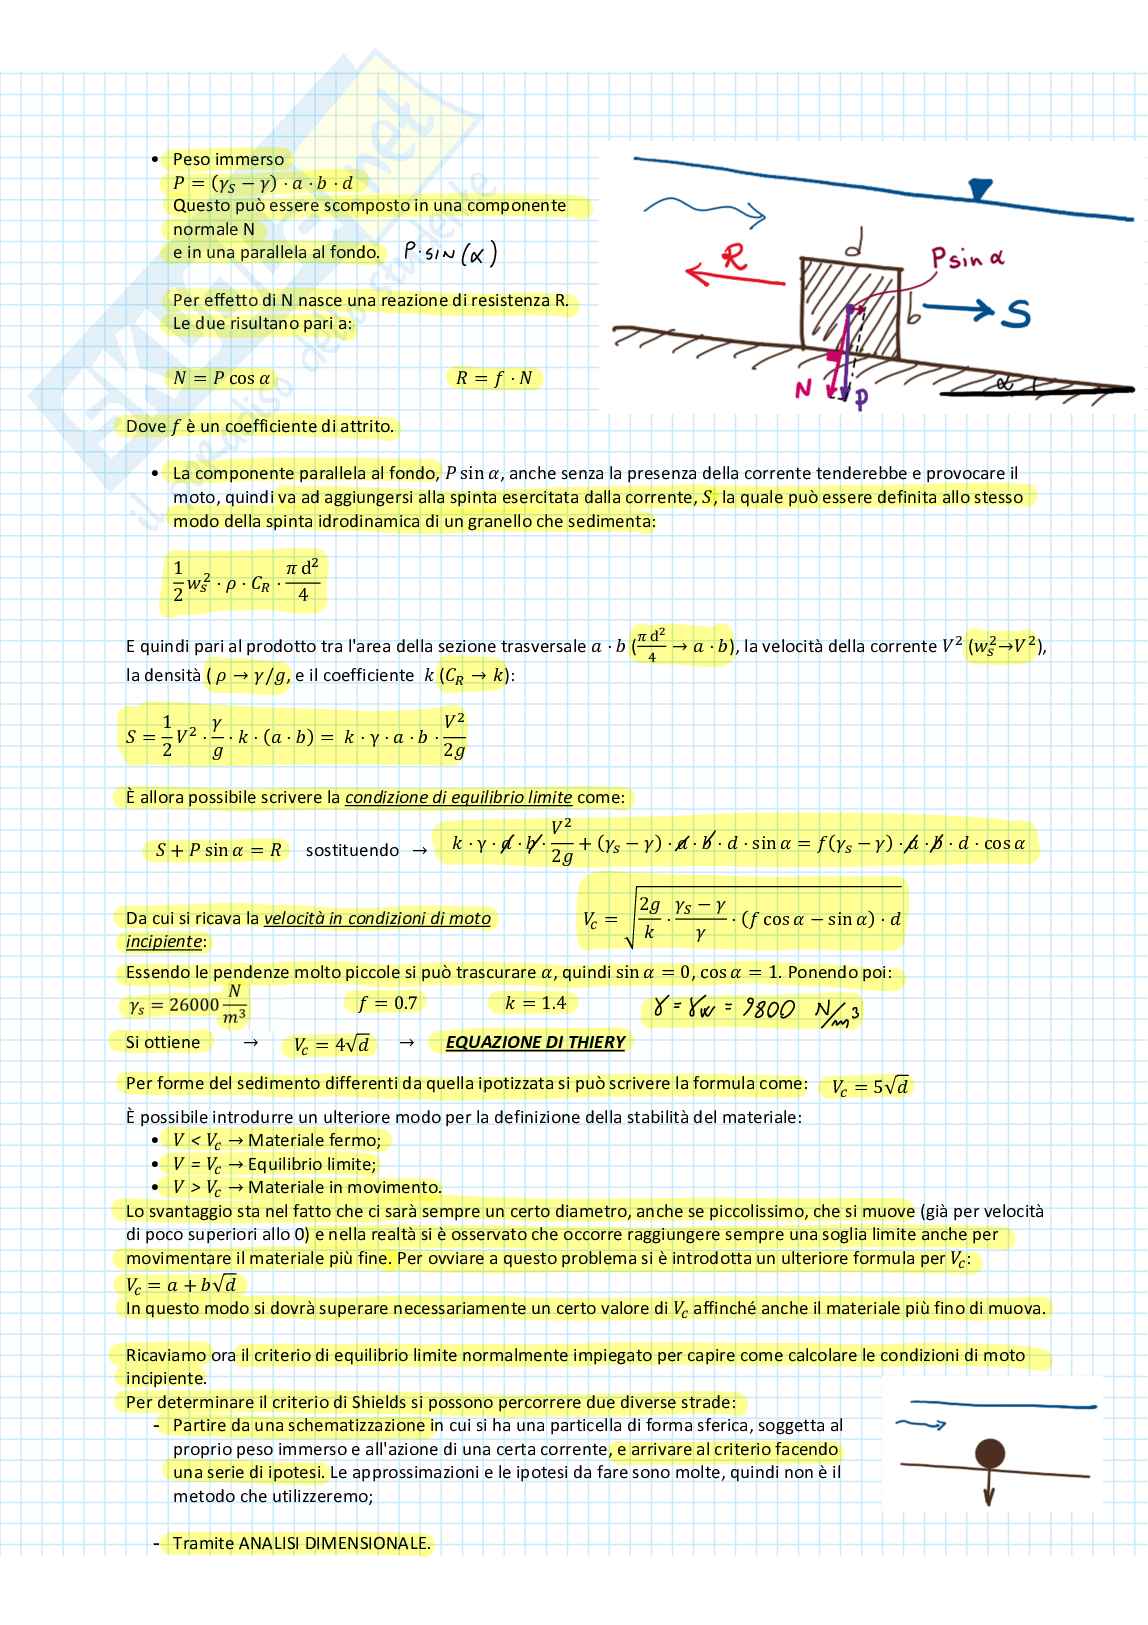 • Peso immerso
P = (γ_S − γ) · a · b · d
Questo può essere scomposto in una componente
normale N
e in una parallela al fondo. P·SIN(α)
Per effetto di N nasce una reazione di resistenza R.
Le due risultano pari a:
N = P cos α R = f · N
d
R
P sin α
b
S
α
N
P
Dove f è un coefficiente di attrito.
• La componente parallela al fondo, P sin α, anche senza la presenza della corrente tenderebbe e provocare il
moto, quindi va ad aggiungersi alla spinta esercitata dalla corrente, S, la quale può essere definita allo stesso
modo della spinta idrodinamica di un granello che sedimenta:
1/2 w_s² · ρ · C_R · π d²/4
E quindi pari al prodotto tra l'area della sezione trasversale a · b (π d²/4 → a · b), la velocità della corrente V² (w_s²→V²),
la densità ( ρ → γ/g, e il coefficiente k (C_R → k):
S = 1/2 V² · γ/g · k · (a · b) = k · γ · a · b · V²/2g
È allora possibile scrivere la condizione di equilibrio limite come:
S + P sin α = R sostituendo → k · γ · a · b · V²/2g + (γ_s − γ) · a · b · d · sin α = f(γ_s − γ) · a · b · d · cos α
Da cui si ricava la velocità in condizioni di moto
incipiente:
V_c = √(2g/k · (γ_S − γ)/γ · (f cos α − sin α) · d)
Essendo le pendenze molto piccole si può trascurare α, quindi sin α = 0, cos α = 1. Ponendo poi:
γ_s = 26000 N/m³ f = 0.7 k = 1.4 γ = γ_w = 9800 N/m³
Si ottiene → V_c = 4√d → EQUAZIONE DI THIERY
Per forme del sedimento differenti da quella ipotizzata si può scrivere la formula come: V_c = 5√d
È possibile introdurre un ulteriore modo per la definizione della stabilità del materiale:
• V < V_c → Materiale fermo;
• V = V_c → Equilibrio limite;
• V > V_c → Materiale in movimento.
Lo svantaggio sta nel fatto che ci sarà sempre un certo diametro, anche se piccolissimo, che si muove (già per velocità
di poco superiori allo 0) e nella realtà si è osservato che occorre raggiungere sempre una soglia limite anche per
movimentare il materiale più fine. Per ovviare a questo problema si è introdotta un ulteriore formula per V_c:
V_c = a + b√d
In questo modo si dovrà superare necessariamente un certo valore di V_c affinché anche il materiale più fino di muova.
Ricaviamo ora il criterio di equilibrio limite normalmente impiegato per capire come calcolare le condizioni di moto
incipiente.
Per determinare il criterio di Shields si possono percorrere due diverse strade:
- Partire da una schematizzazione in cui si ha una particella di forma sferica, soggetta al
proprio peso immerso e all'azione di una certa corrente, e arrivare al criterio facendo
una serie di ipotesi. Le approssimazioni e le ipotesi da fare sono molte, quindi non è il
metodo che utilizzeremo;
- Tramite ANALISI DIMENSIONALE.